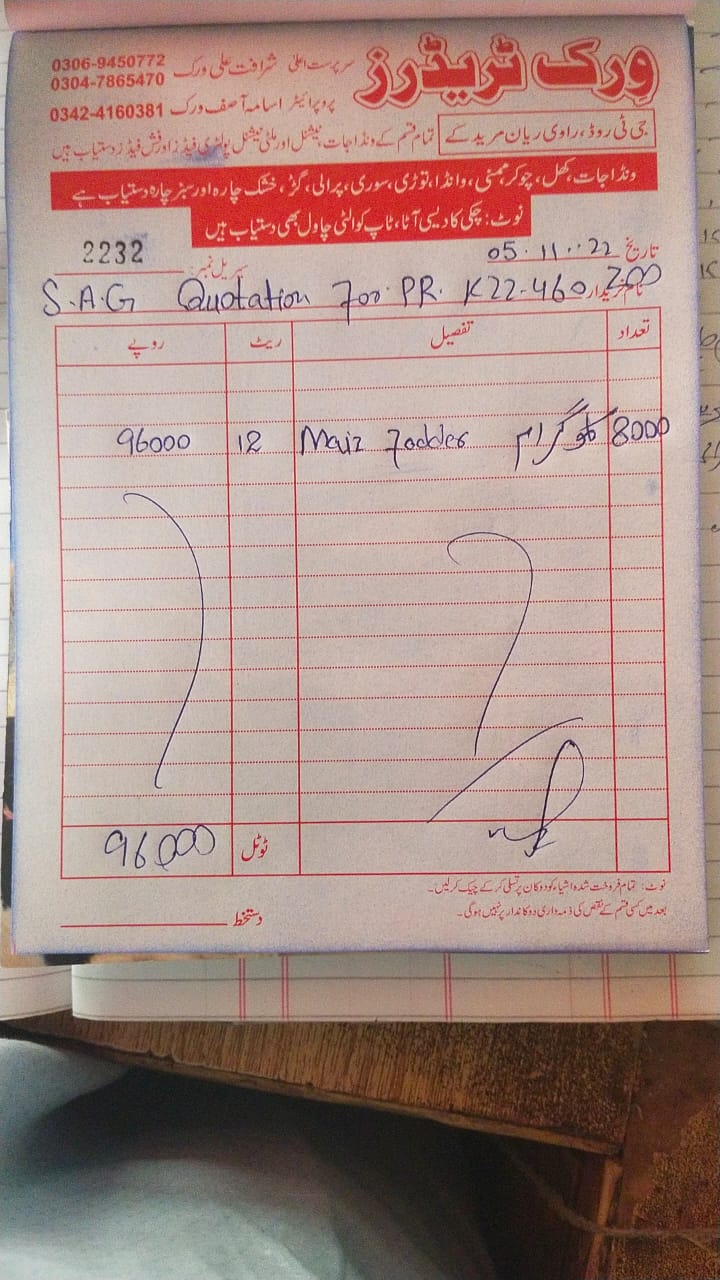 ورک ٹریڈرز
سرپرست اعلیٰ شرافت علی ورک 0306-9450772
0304-7865470
پروپرائیٹر اسامہ آصف ورک 0342-4160381
جی ٹی روڈ، راوی ریان مریدکے
تمام قسم کے ونڈا جات، نیشنل اور ملٹی نیشنل پولٹری فیڈز اور فش فیڈز دستیاب ہیں
ونڈا جات، کھل، چوکر، ممٹی، وانڈا، توڑی، سوری، پرالی، گڑ، خشک چارہ اور سبز چارہ دستیاب ہے
نوٹ: چکی کا دیسی آٹا، ٹاپ کوالٹی چاول بھی دستیاب ہیں
تاریخ 05.11..22
سیریل نمبر: 2232
S.A.G Quotation For PR. K22-460, 200
تعداد تفصیل ریٹ روپے
8000 کلوگرام Maiz Fodder 12 96000
ٹوٹل 96000
نوٹ: تمام فروخت شدہ اشیاء کو دوکان پر تسلی کر کے چیک کر لیں۔
بعد میں کسی قسم کے نقص کی ذمہ داری دوکاندار پر نہیں ہوگی۔
دستخط